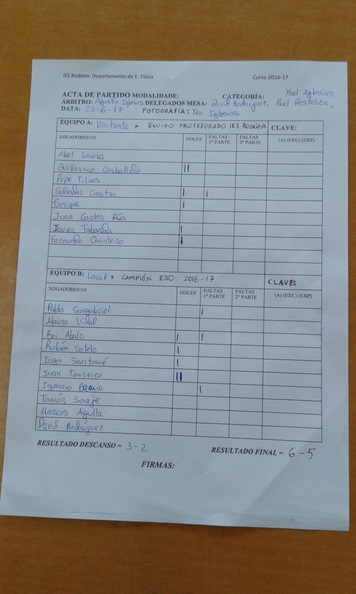 IES Rodeira. Departamento de E. Física Curso 2016-17
ACTA DE PARTIDO MODALIDADE: CATEGORÍA: Yoel Iglesias
ÁRBITRO: Agustín Iglesias DELEGADOS MESA: David Rodríguez, Abel
DATA: 23-6-17 FOTOGRAFÍA: Iglesias
EQUIPO A: Visitante * EQUIPO PROFESORADO IES RODEIRA CLAVE:
XOGADORES/AS GOLES FALTAS 1ª PARTE FALTAS 2ª PARTE (A) (EXC) (EXP)
Abel Lourza
Guillermo Carballido II
Pepe Tilves
Salvador Castro I I
Enrique I
Juan Carlos
Javier Taboada I
Fernando Chanteiro I
EQUIPO B: Local * CAMPIÓN ESO 2016-17 CLAVE:
XOGADORES/AS GOLES FALTAS 1ª PARTE FALTAS 2ª PARTE (A) (EXC) (EXP)
Pablo Sangabriel I
Mauro Vidal
Roi Abalo I
Rubén Sotelo I
Iago Santomé I
Juan Tenreiro II
Ignacio I
Tomás
Marcos Agulla
David Rodríguez
RESULTADO DESCANSO = 3-2 RESULTADO FINAL = 6-5
FIRMAS: